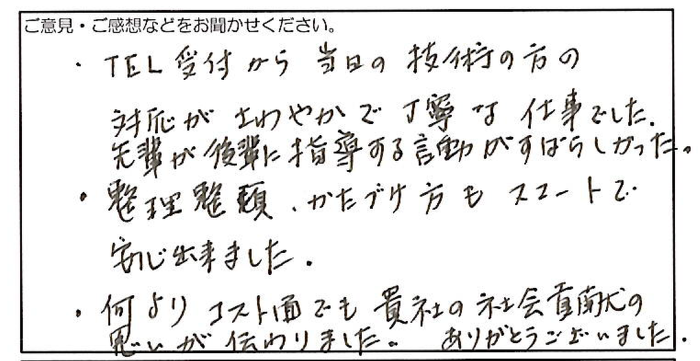 ご意見・ご感想などをお聞かせください。
・TEL受付から当日の技術の方の
対応がさわやかで丁寧な仕事でした。
先輩が後輩に指導する言動がすばらしかった。
・整理整頓、かたづけ方もスマートで
安心出来ました。
・何よりコスト面でも貴社の社会貢献の
思いが伝わりました。ありがとうございました。